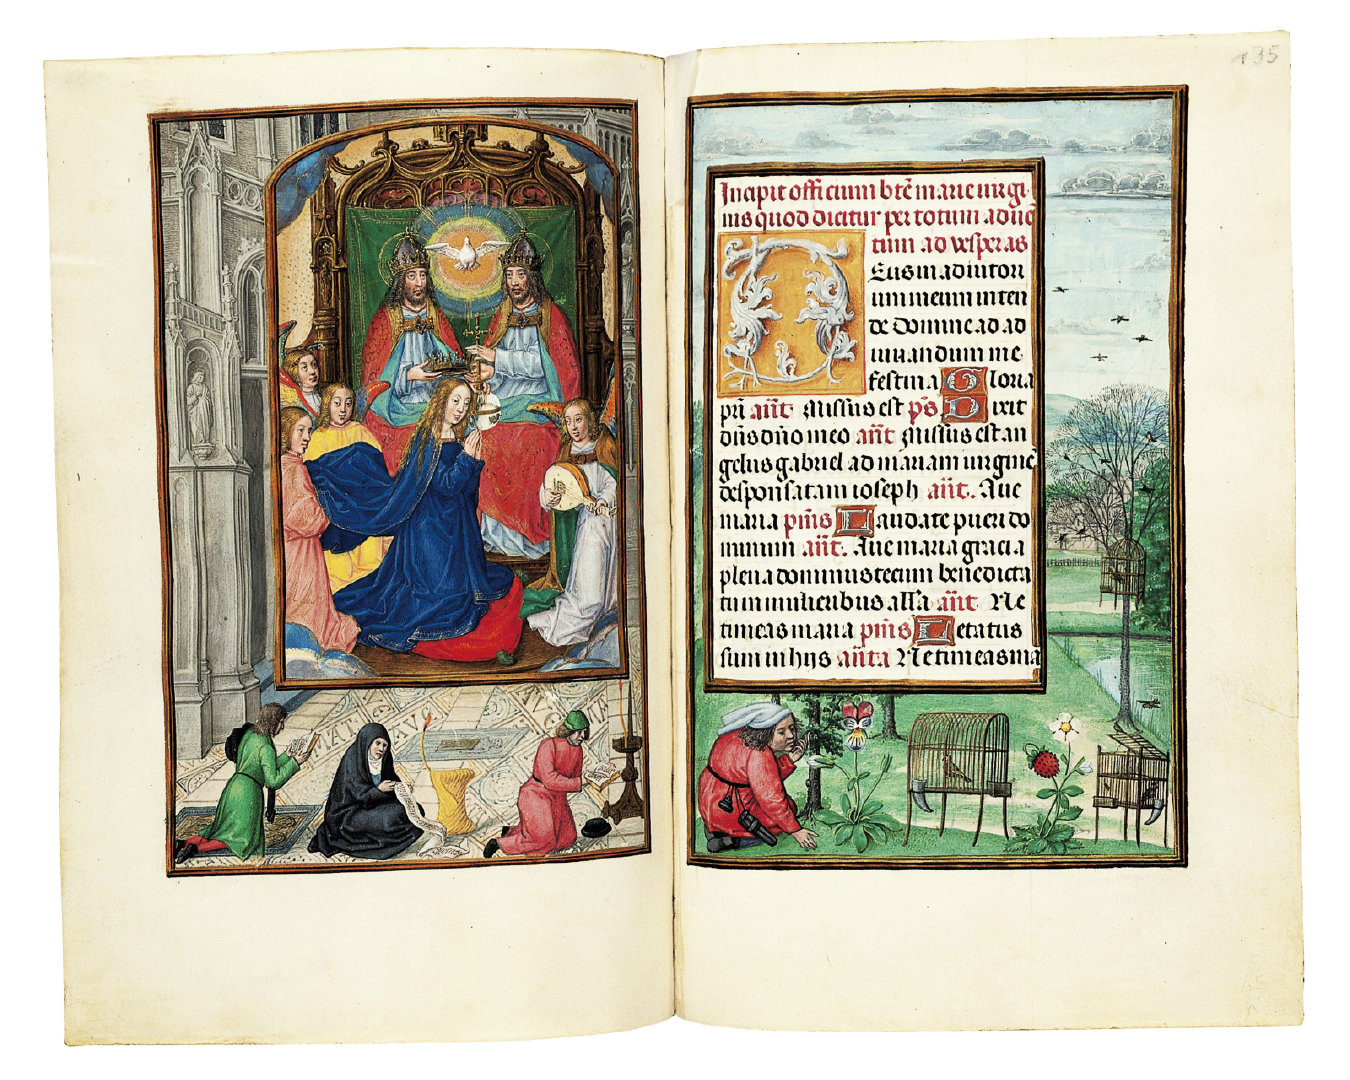 MARIE
AVG
135
Incipit officium btē marie uirgi
nis quod dicitur per totum aduē
tum ad vesperas
Eus in adiutori
um meum inten
de Domine ad ad
iuuandum me
festina Gloria
prī añt. Missus est ps̄ Dixit
dn̄s dn̄o meo añt Missus est an
gelus gabriel ad mariam uirginē
desponsatam ioseph añt. Aue
maria pm̄s Laudate pueri do
minum añt. Aue maria gracia
plena dominus tecum benedicta
tu in mulieribus alla añt Ne
timeas maria pm̄s Letatus
sum in hijs añta Ne timeas ma